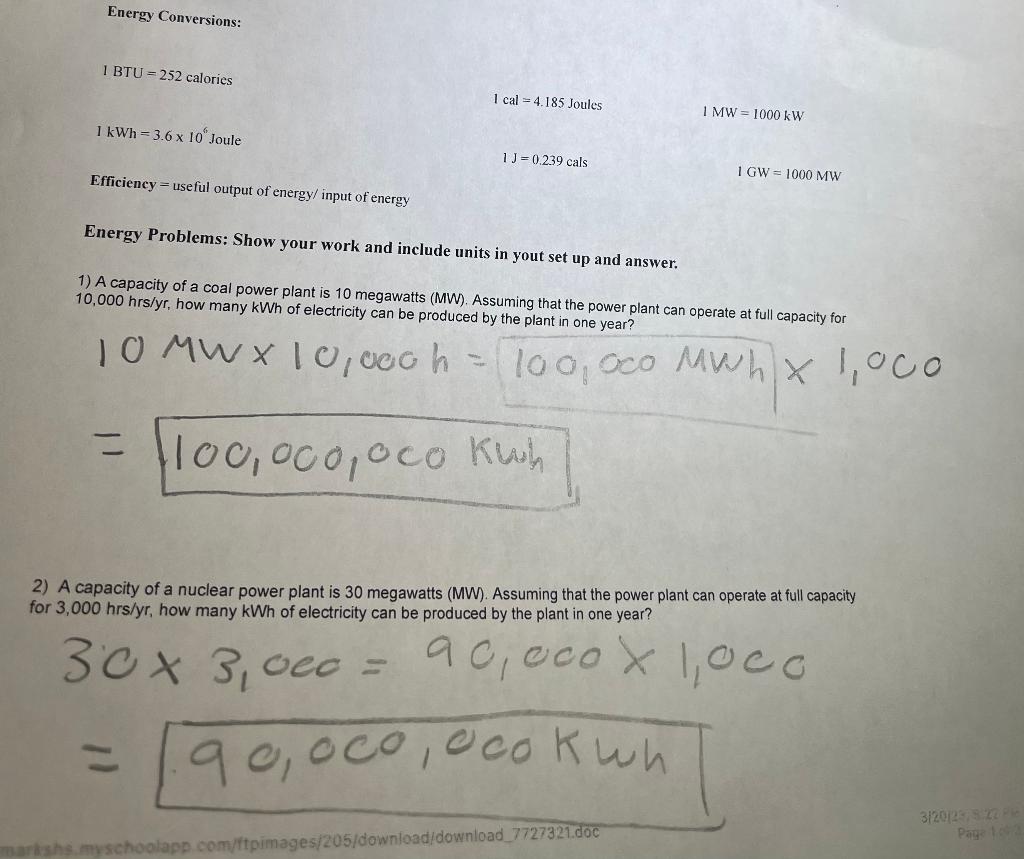 Energy Conversions:
1 BTU = 252 calories
1 cal = 4.185 Joules
1 MW = 1000 kW
1 kWh = 3.6 x 10⁶ Joule
1 J = 0.239 cals
1 GW = 1000 MW
Efficiency = useful output of energy/ input of energy
Energy Problems: Show your work and include units in yout set up and answer.
1) A capacity of a coal power plant is 10 megawatts (MW). Assuming that the power plant can operate at full capacity for
10,000 hrs/yr, how many kWh of electricity can be produced by the plant in one year?
10 MW x 10,000 h = 100,000 MWh x 1,000
= 100,000,000 Kwh
2) A capacity of a nuclear power plant is 30 megawatts (MW). Assuming that the power plant can operate at full capacity
for 3,000 hrs/yr, how many kWh of electricity can be produced by the plant in one year?
30 x 3,000 = 90,000 x 1,000
= 90,000,000 Kwh
3/20/23, 5:22 PM
markshs.myschoolapp.com/ftpimages/205/download/download_7727321.doc
Page 1 of 2